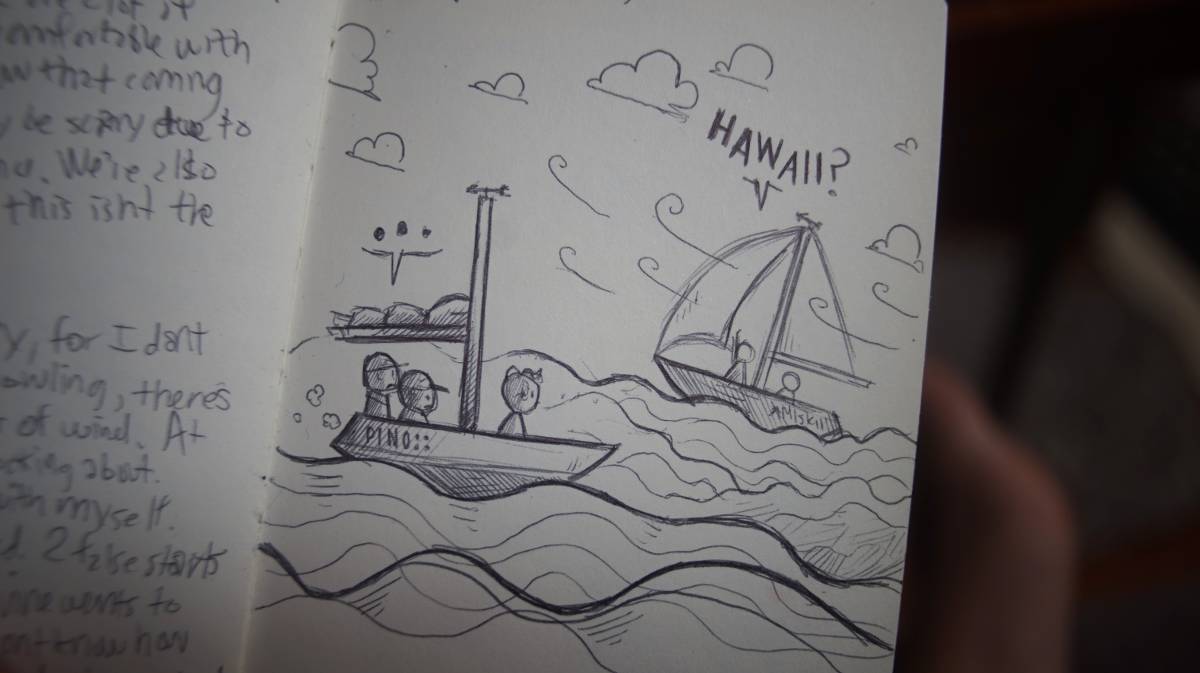 comfortable with
that coming
be scary due to
We're also
this isnt the
for I dont
howling, there's
of wind. At
about.
with myself.
2 false starts
wants to
know how
HAWAII?
...
PINO::
AMiskii